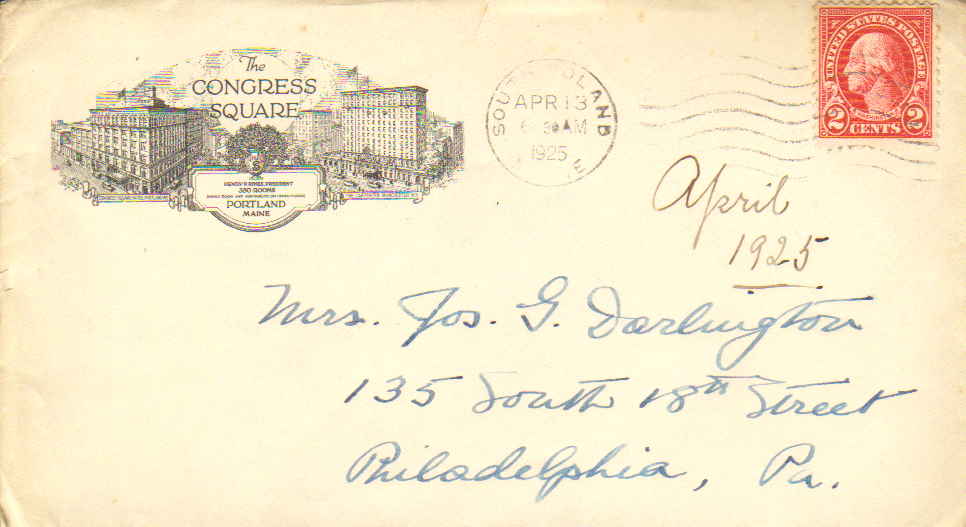 The
CONGRESS
SQUARE
HENRY P. RINES, PRESIDENT
350 ROOMS
PORTLAND
MAINE
SOUTH PORTLAND
APR 13
AM
1925
UNITED STATES POSTAGE
2 CENTS 2
April
1925
Mrs. Jos. G. Darlington
135 South 18th Street
Philadelphia, Pa.